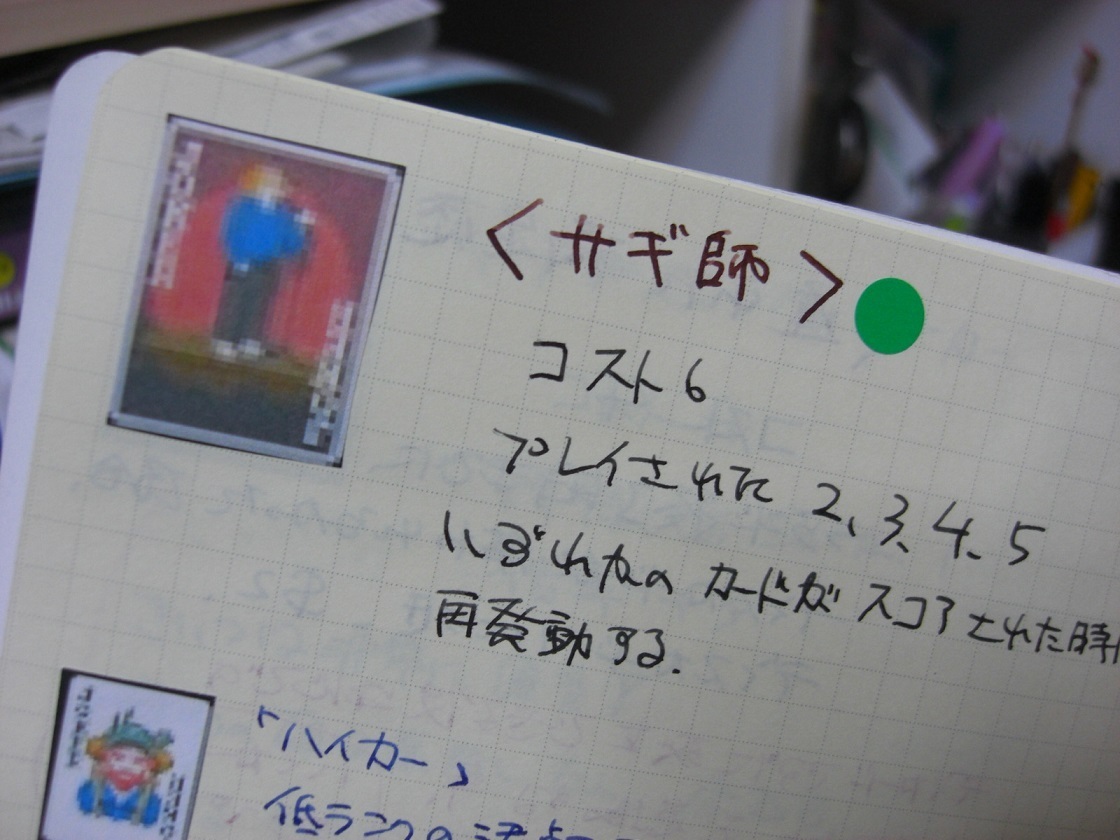 〈サギ師〉
コスト6
プレイされた 2、3、4、5
いずれかの カードが スコアされた時
再発動する.
「ハイカー」
低ランクの